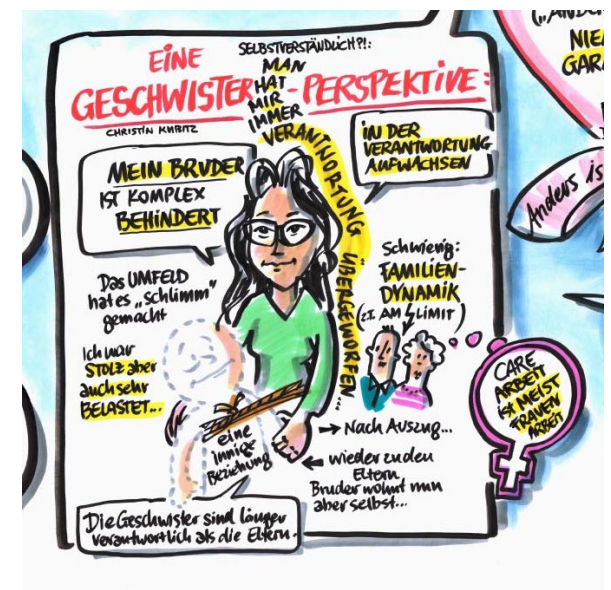 EINE
GESCHWISTER-PERSPEKTIVE:
CHRISTIN KUBITZ
SELBSTVERSTÄNDLICH?!:
MAN
HAT
MIR
IMMER
VERANTWORTUNG ÜBERGEWORFEN...
MEIN BRUDER
IST KOMPLEX
BEHINDERT
IN DER
VERANTWORTUNG
AUFWACHSEN
Das UMFELD
hat es „schlimm"
gemacht
Ich war
STOLZ aber
auch sehr
BELASTET...
Schwierig:
FAMILIEN-
DYNAMIK
(z.T. AM LIMIT)
eine
innige
Beziehung
→ Nach Auszug...
← wieder zu den
Eltern
Bruder wohnt nun
aber selbst...
Die Geschwister sind länger
verantwortlich als die Eltern.
CARE
ARBEIT
ist MEIST
FRAUEN
ARBEIT
NIE
GAR
Anders is